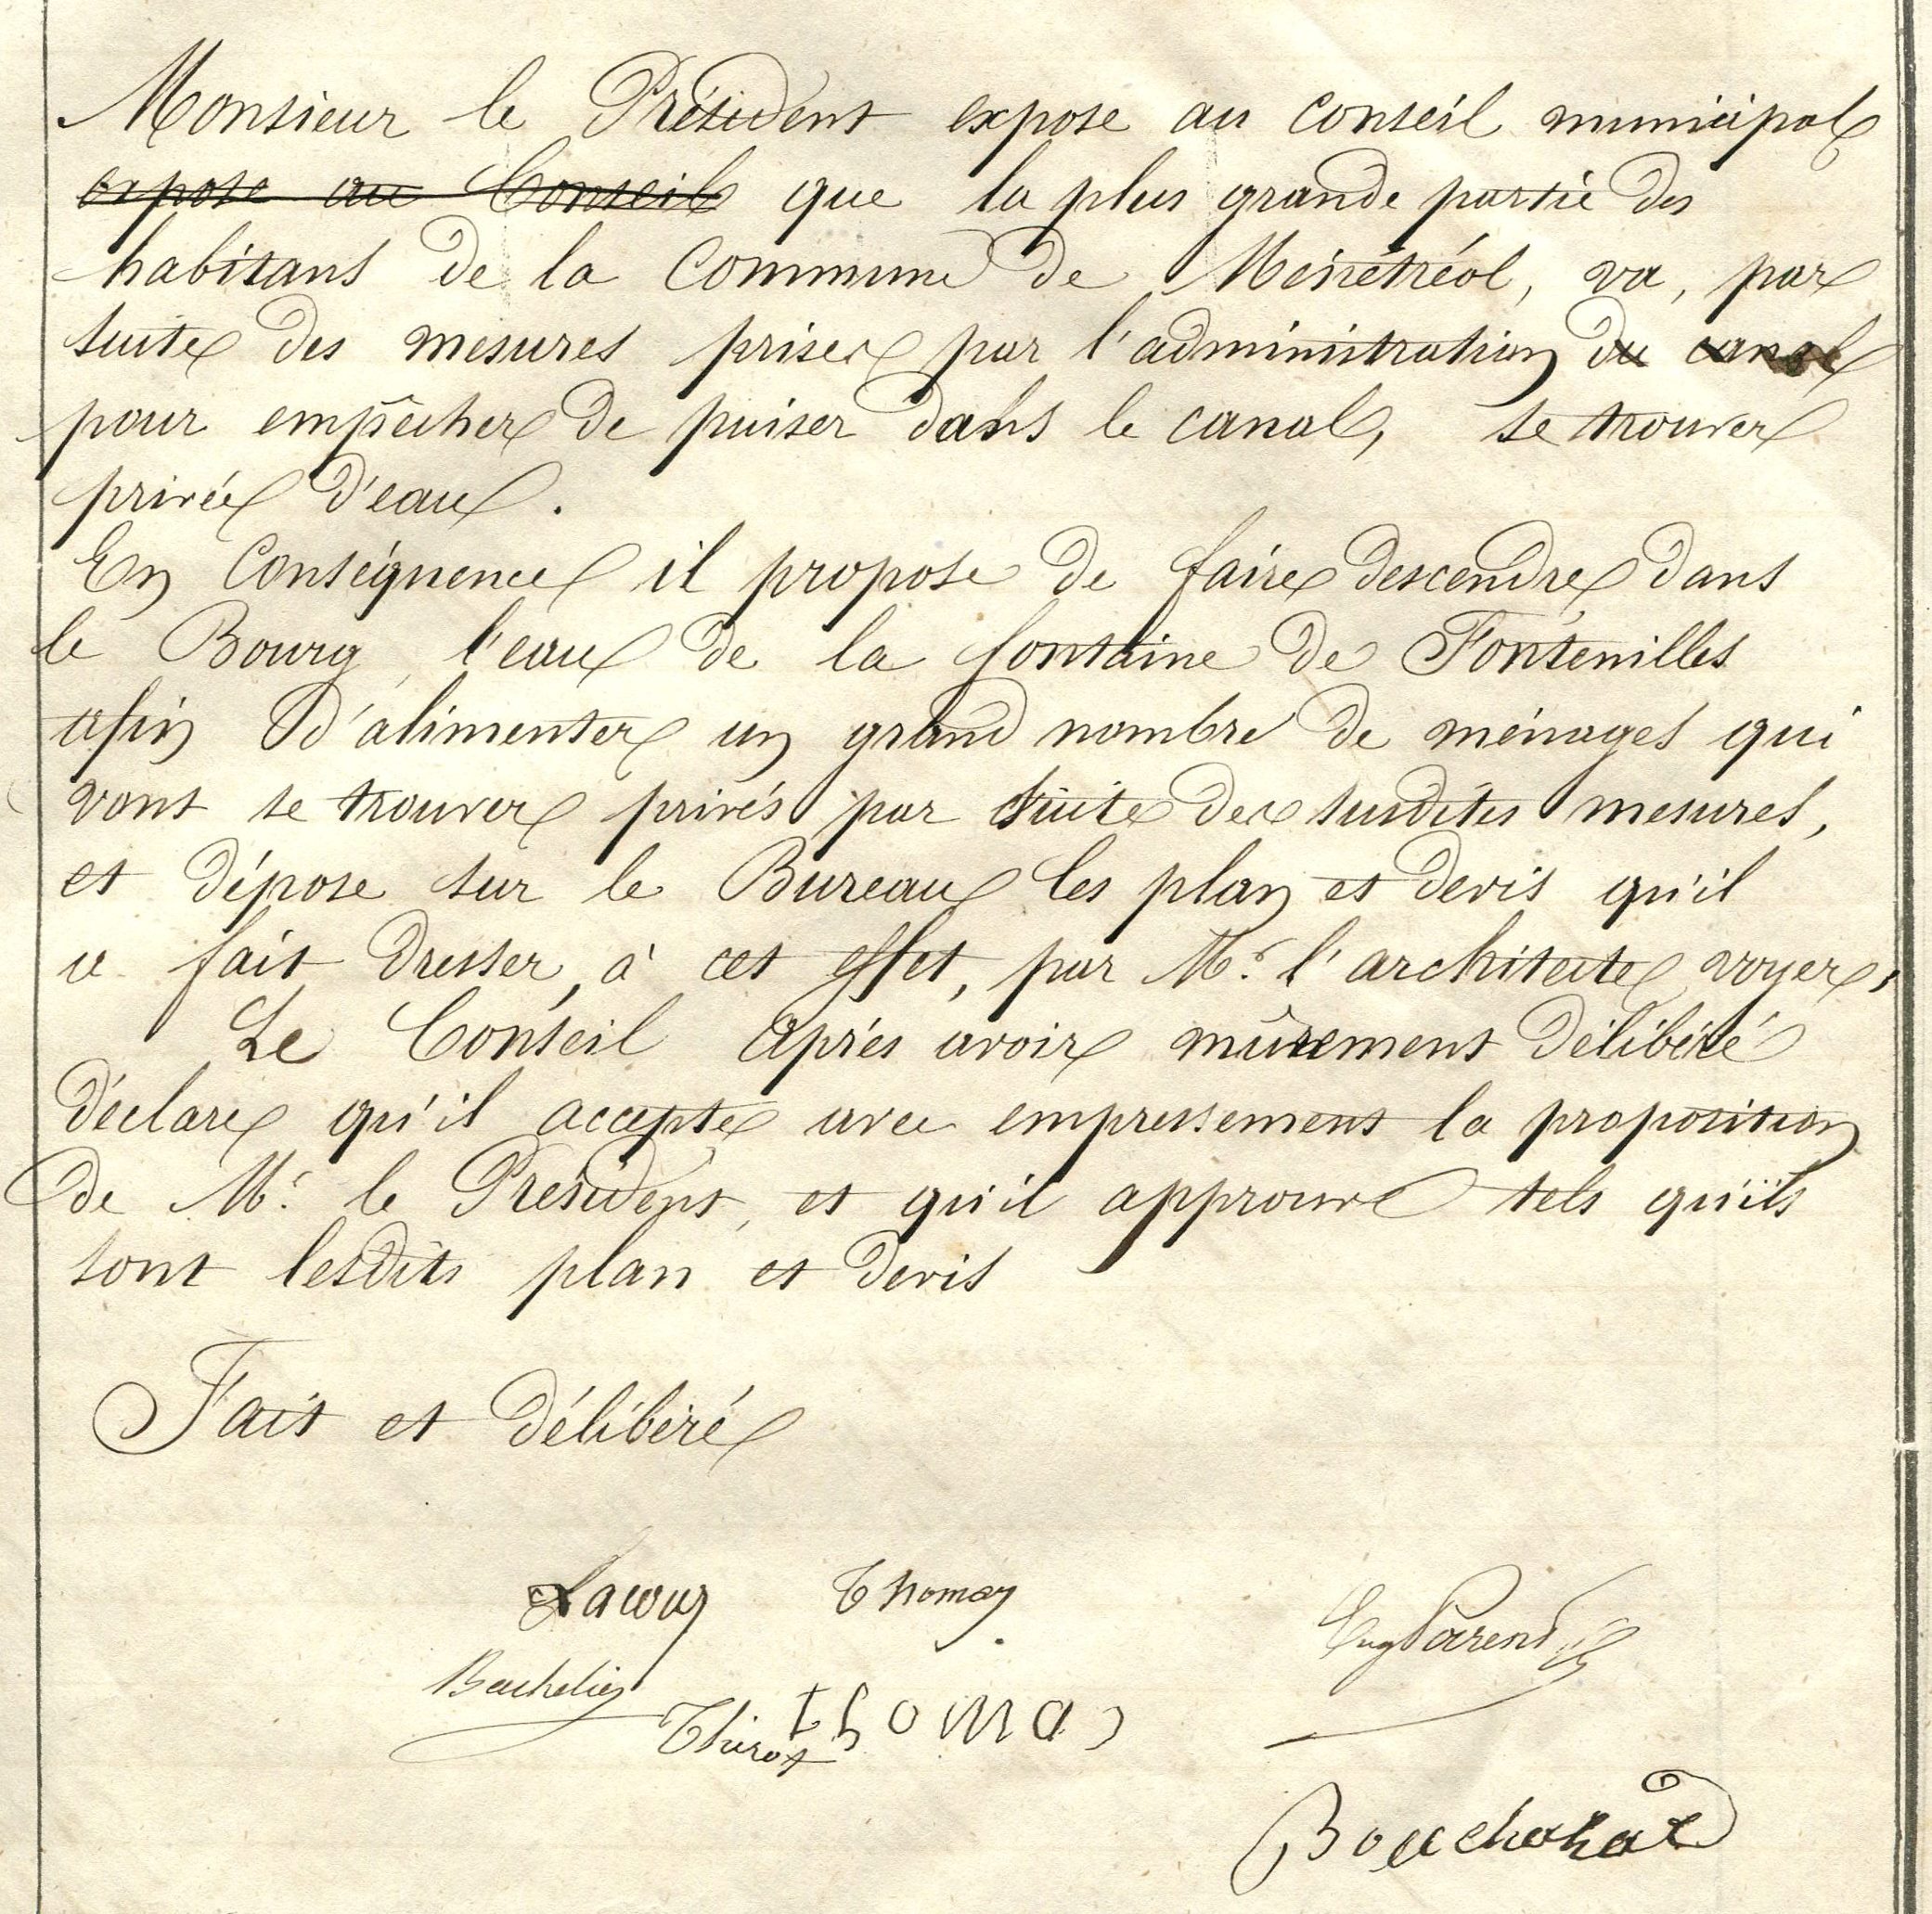 Monsieur le Président expose au Conseil municipal
expose au Conseil que la plus grande partie des
habitans de la Commune de Ménétréol, va, par
suite des mesures prises par l'administration du canal
pour empêcher de puiser dans le canal, se trouver
privée d'eau.
En Conséquence il propose de faire descendre dans
le Bourg, l'eau de la fontaine de Fontenilles
afin d'alimenter un grand nombre de ménages qui
vont se trouver privés par suite des susdites mesures,
et dépose sur le Bureau les plan et devis qu'il
a fait dresser, à cet effet, par Mr. l'architecte voyer,
Le Conseil après avoir mûrement délibéré
déclare qu'il accepte avec empressement la proposition
de Mr. le Président, et qu'il approuve tels qu'ils
sont lesdits plan et devis
Fait et délibéré
Lacour Thomas
Eug Parent
Bachelier
Thirot thomas